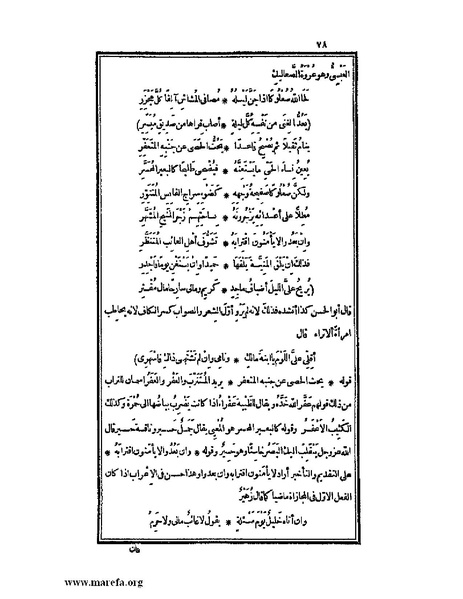 ٧٨
العبسى وهو عروة الصعاليك
لحا الله صعلوكا اذا جن ليله * مصافى المشاش آلفا كل مجزر
(يعد الغنى من نفسه كل ليلة * أصاب قراها من صديق ميسر)
ينام ثقيلا ثم يصبح قاعدا * يحت الحصى عن جنبه المتعفر
يعين نساء الحى ما يستعنه * فيضحى طليحا كالبعير المحسر
ولكن صعلوكا صفيحة وجهه * كضوء سراج القابس المتنور
مطلا على أعدائه يزجرونه * بساحتهم زجر المنيح المشهر
وان بعدوا لا يأمنون اقترابه * تشوف أهل الغائب المنتظر
فذلك ان يلق المنية يلقها * حميدا وان يستغن يوما فأجدر
(يريح على الليل أضياف ماجد * كريم ومالى سارحا مال مقتر
قال أبو الحسن كذا أنشده فذلك لانه لم يرو أول الشعر والصواب كسر الكاف لانه يخاطب
امرأة ألا تراه قال
أقلى على اللوم يا ابنة مالك * ونامى وان لم تشتهى ذاك فاسهرى)
قوله * يحت الحصى عن جنبه المتعفر * يريد المتترب والعفر والعفر اسمان للتراب
من ذلك قولهم عفر الله خده ويقال للظبية عفراء اذا كانت يضرب بياضها الى حمرة وكذلك
الكثيب الاعفر وقوله كالبعير المحسر هو المعيى يقال جمل حسير وناقة حسير قال
الله عز وجل ينقلب اليك البصر خاسئا وهو حسير وقوله * وان بعدوا لا يأمنون اقترابه *
على التقديم والتأخير أراد لا يأمنون اقترابه وان بعدوا وهذا حسن فى الاعراب اذا كان
الفعل الاول فى المجازاة ماضيا كما قال زهير
وان أتاه خليل يوم مسئلة * يقول لا غائب مالى ولا حرم
www.marefa.org